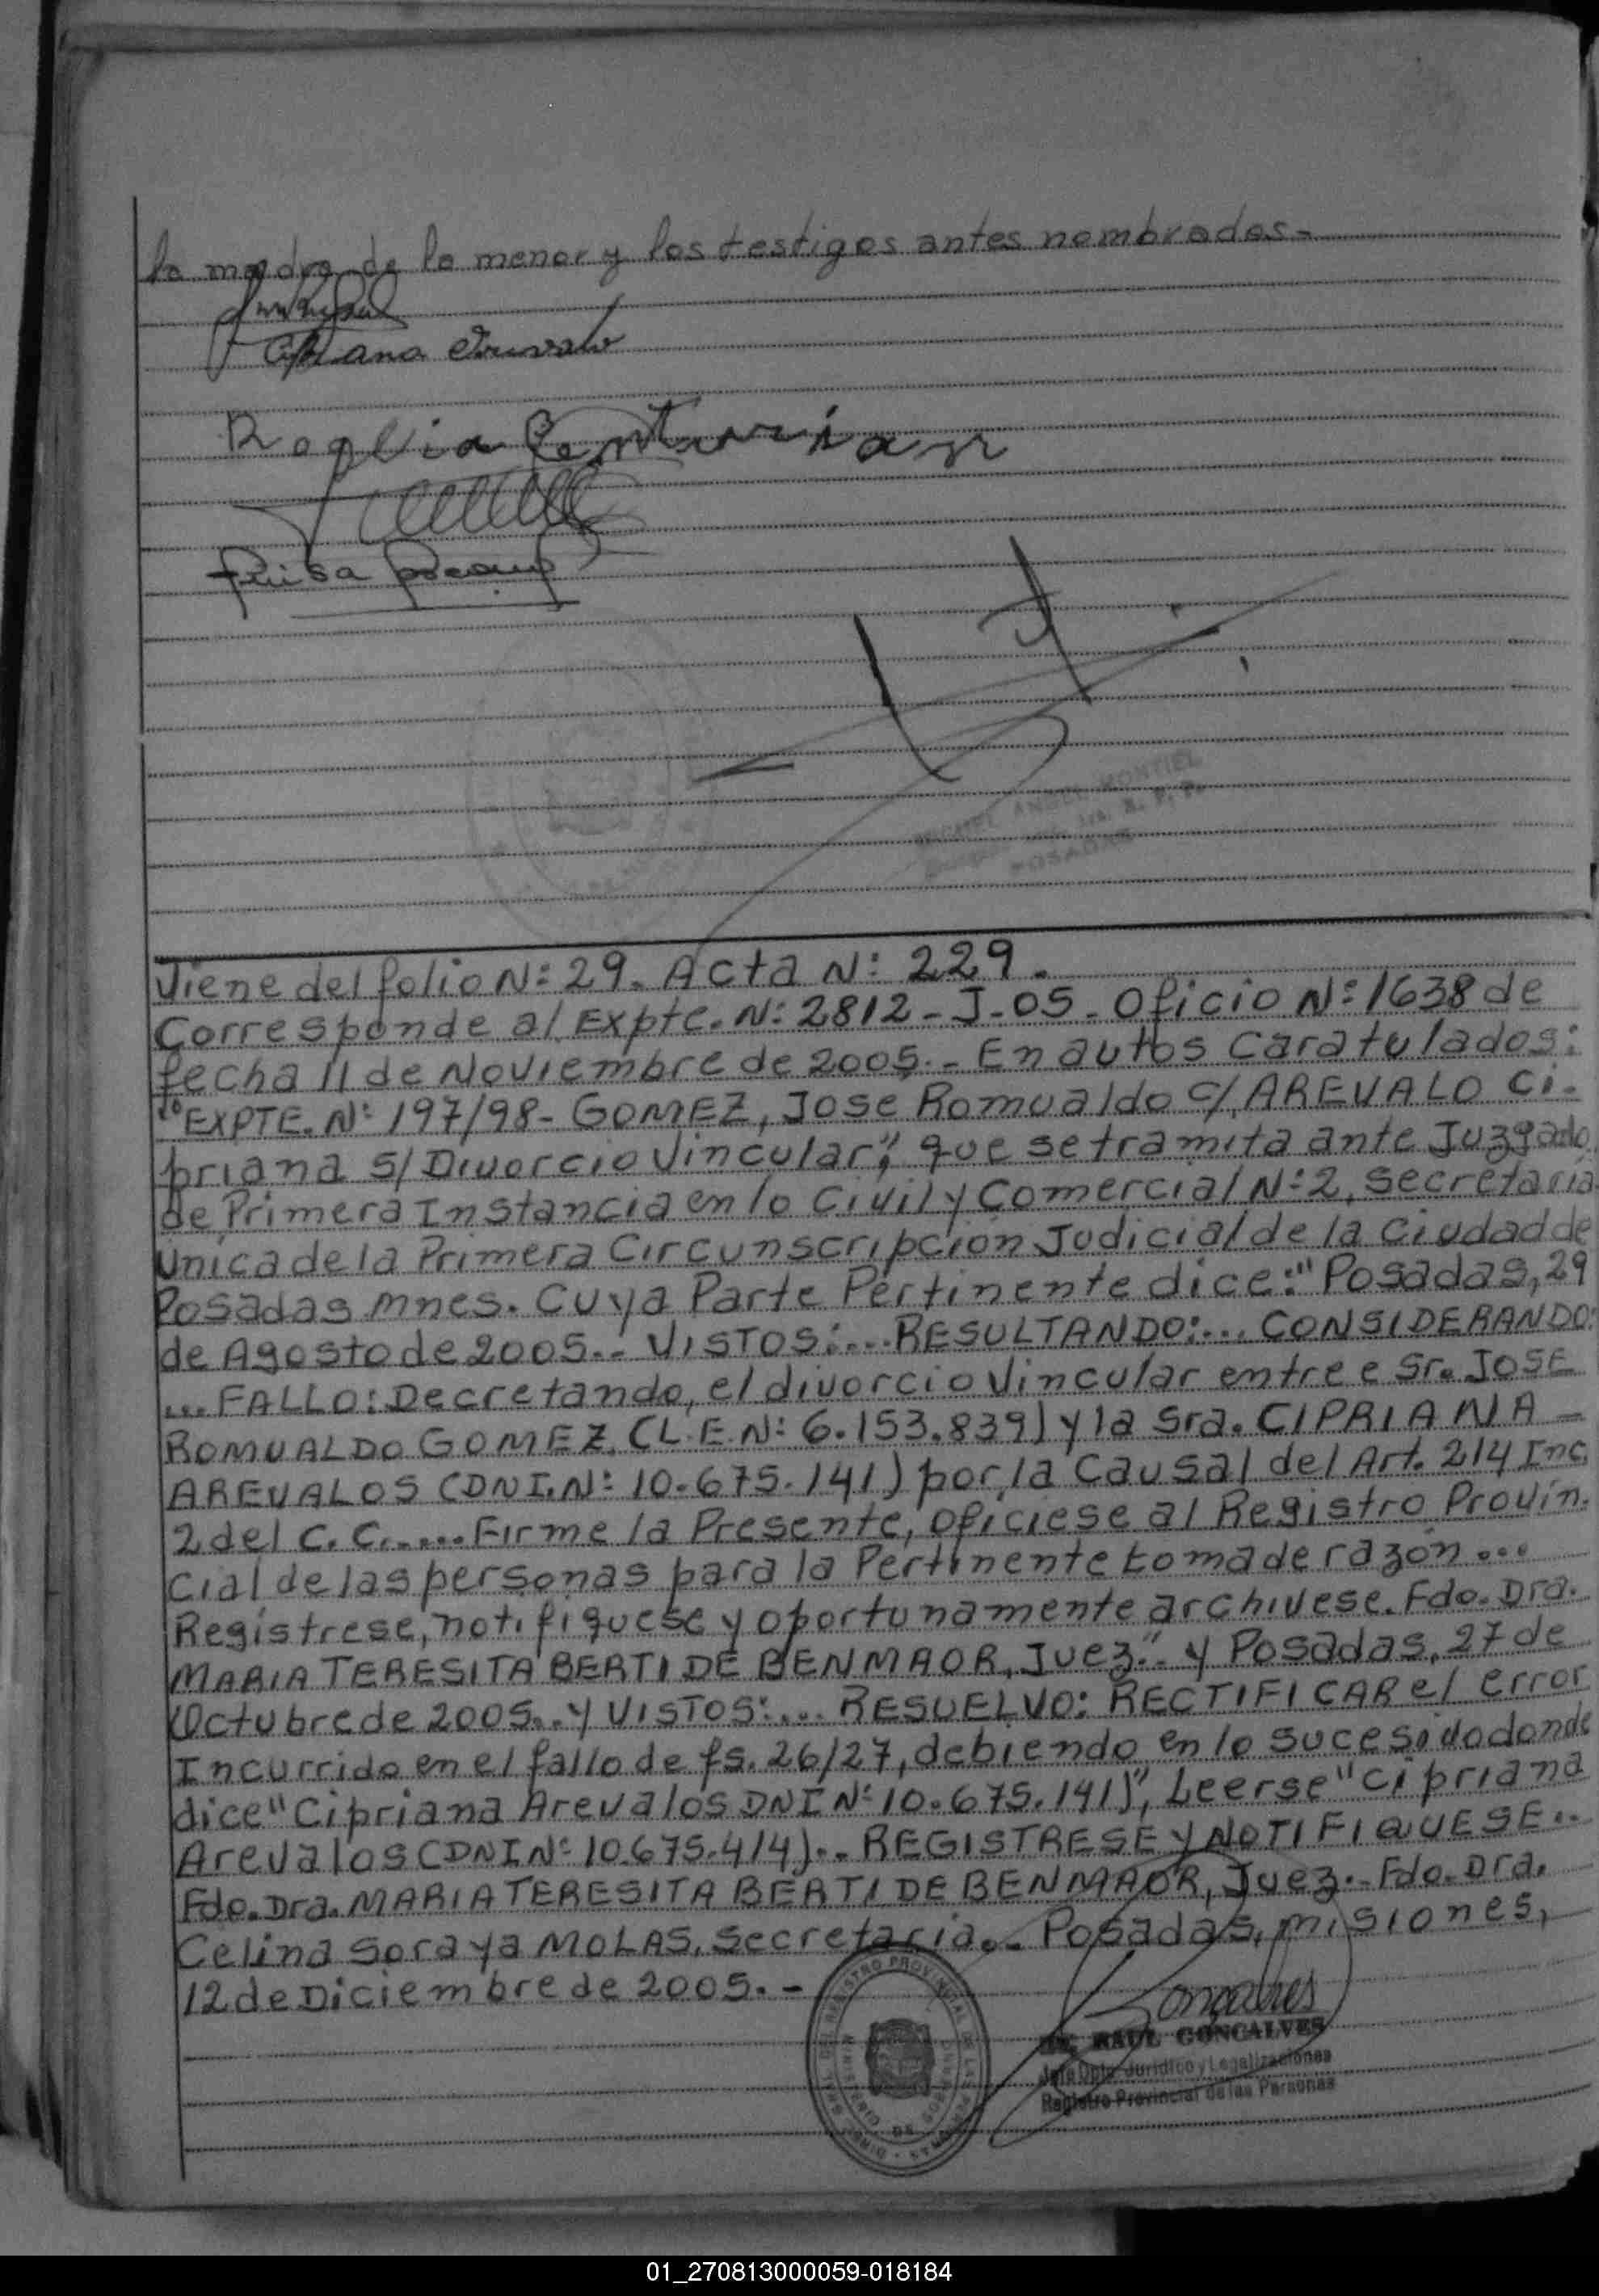 la madre de la menor y los testigos antes nombrados.-
Cipriana Arevalo
Roqlia Centurian
Luisa
ANGEL MONTIEL
POSADAS
Viene del folio N: 29. Acta N: 229.
Corresponde al Expte. N: 2812-J-05. Oficio N: 1638 de
fecha 11 de Noviembre de 2005.- En autos caratulados:
"EXPTE. N: 197/98- GOMEZ, Jose Romualdo c/ AREVALO Ci-
priana S/ Divorcio Vincular", que se tramita ante Juzgado
de Primera Instancia en lo Civil y Comercial N: 2, secretaría
Unica de la Primera Circunscripción Judicial de la Ciudad de
Posadas Mnes. Cuya Parte Pertinente dice: "Posadas, 29
de Agosto de 2005.. VISTOS:... RESULTANDO:... CONSIDERANDO:
... FALLO: Decretando, el divorcio Vincular entre e Sr. JOSE
ROMUALDO GOMEZ (L.E.N: 6.153.839) y la Sra. CIPRIANA -
AREVALOS (DNI.N: 10.675.141) por la Causal del Art. 214 Inc.
2 del C.C..... Firme la Presente, ofíciese al Registro Provin.
cial de las personas para la Pertinente toma de razón...
Regístrese, notifiquese y oportunamente archivese. Fdo. Dra.
MARIA TERESITA BERTI DE BENMAOR, Juez".. y Posadas, 27 de
Octubre de 2005.. Y VISTOS:... RESUELVO: RECTIFICAR el error
Incurrido en el fallo de fs. 26/27, debiendo en lo sucesivo donde
dice "Cipriana Arevalos DNI N: 10.675.141)", Leerse "Cipriana
Arevalos (DNI N: 10.675.414).. REGISTRESE Y NOTIFIQUESE..
Fdo. Dra. MARIA TERESITA BERTI DE BENMAOR, Juez.- Fdo. Dra.
Celina Soraya MOLAS, Secretaria.- Posadas, misiones,
12 de Diciembre de 2005.-
Goncalves
Dr. RAUL GONCALVES
Jefe Dpto. Jurídico y Legalizaciones
Registro Provincial de las Personas
REGISTRO PROVINCIAL DE LAS PERSONAS
01_270813000059-018184